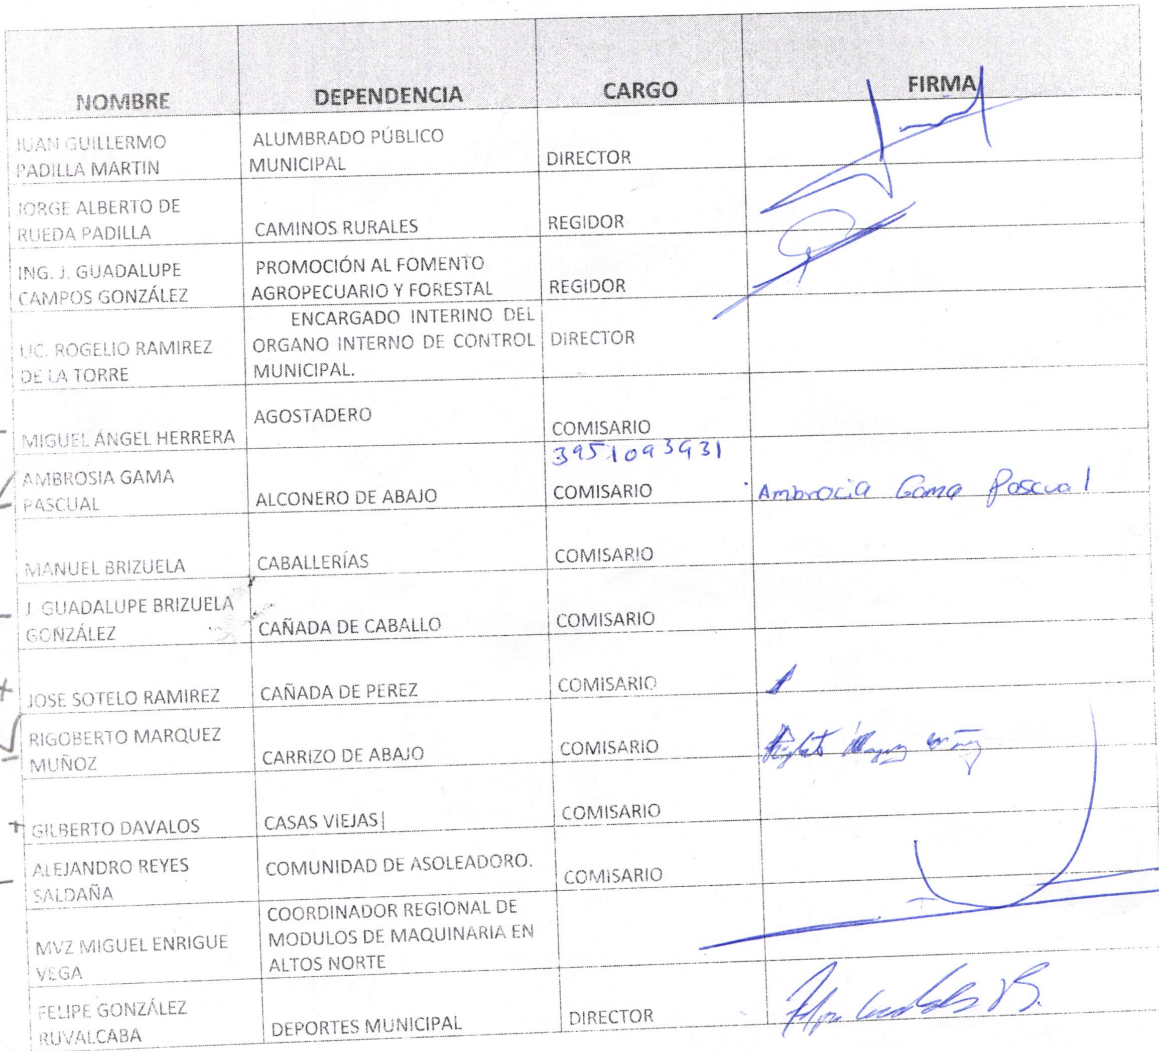 NOMBRE DEPENDENCIA CARGO FIRMA
JUAN GUILLERMO
PADILLA MARTIN
ALUMBRADO PÚBLICO
MUNICIPAL
DIRECTOR
JORGE ALBERTO DE
RUEDA PADILLA
CAMINOS RURALES
REGIDOR
ING. J. GUADALUPE
CAMPOS GONZÁLEZ
PROMOCIÓN AL FOMENTO
AGROPECUARIO Y FORESTAL
REGIDOR
LIC. ROGELIO RAMIREZ
DE LA TORRE
ENCARGADO INTERINO DEL
ORGANO INTERNO DE CONTROL
MUNICIPAL.
DIRECTOR
MIGUEL ÁNGEL HERRERA
AGOSTADERO
COMISARIO
AMBROSIA GAMA
PASCUAL
ALCONERO DE ABAJO
3951093931
COMISARIO
Ambrocia Gama Pascual
MANUEL BRIZUELA
CABALLERÍAS
COMISARIO
J. GUADALUPE BRIZUELA
GONZÁLEZ
CAÑADA DE CABALLO
COMISARIO
JOSE SOTELO RAMIREZ
CAÑADA DE PEREZ
COMISARIO
RIGOBERTO MARQUEZ
MUÑOZ
CARRIZO DE ABAJO
COMISARIO
GILBERTO DAVALOS
CASAS VIEJAS|
COMISARIO
ALEJANDRO REYES
SALDAÑA
COMUNIDAD DE ASOLEADORO.
COMISARIO
MVZ MIGUEL ENRIGUE
VEGA
COORDINADOR REGIONAL DE
MODULOS DE MAQUINARIA EN
ALTOS NORTE
FELIPE GONZÁLEZ
RUVALCABA
DEPORTES MUNICIPAL
DIRECTOR